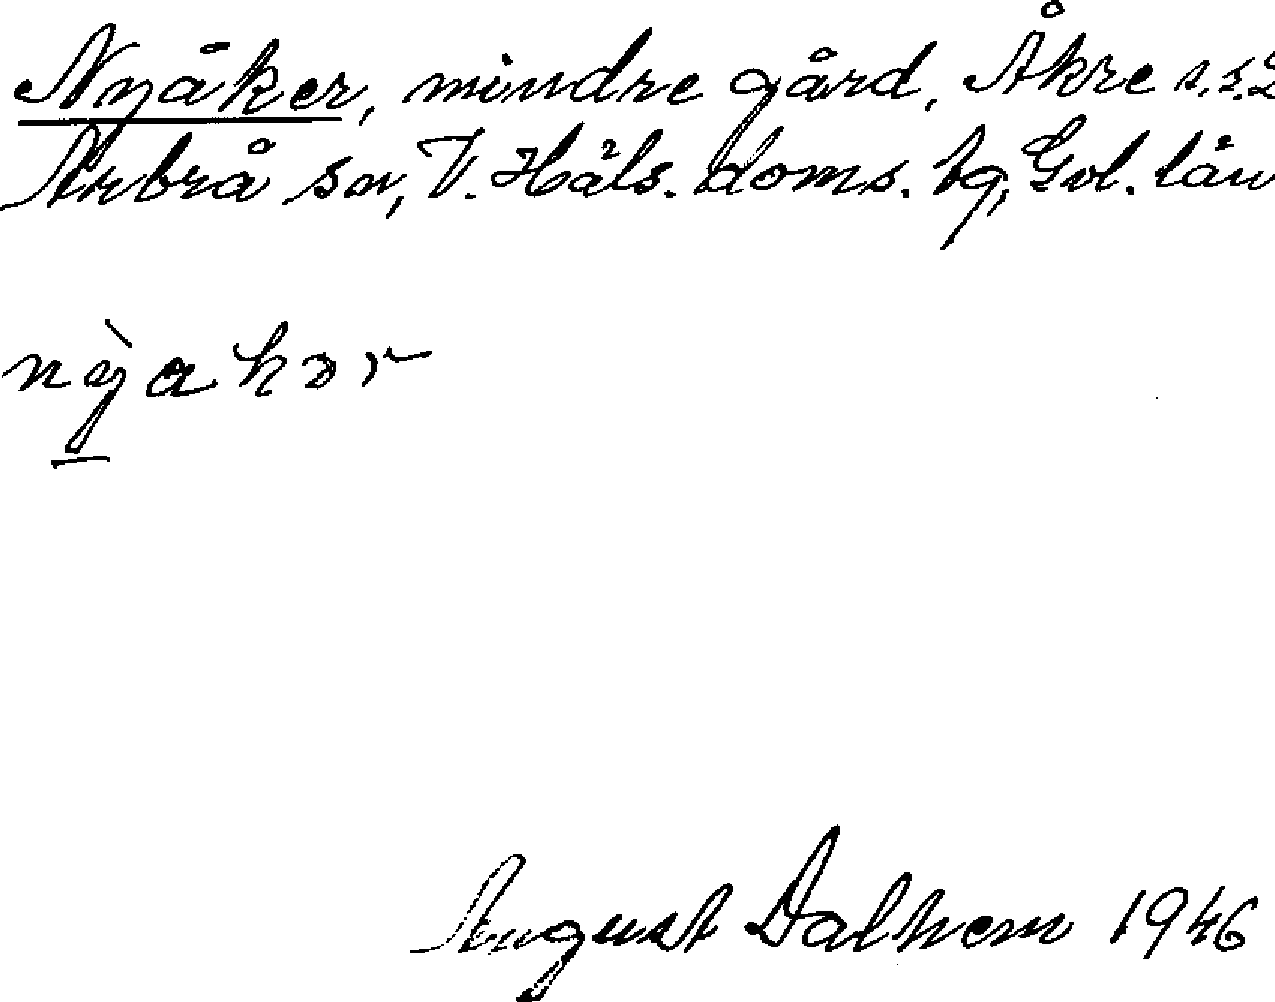 Nyåker, mindre gård, Åkre s.s.2
Arbrå sn, V. Häls. doms. tg, Gvl. län
nỳakər
August Dalhem 1946